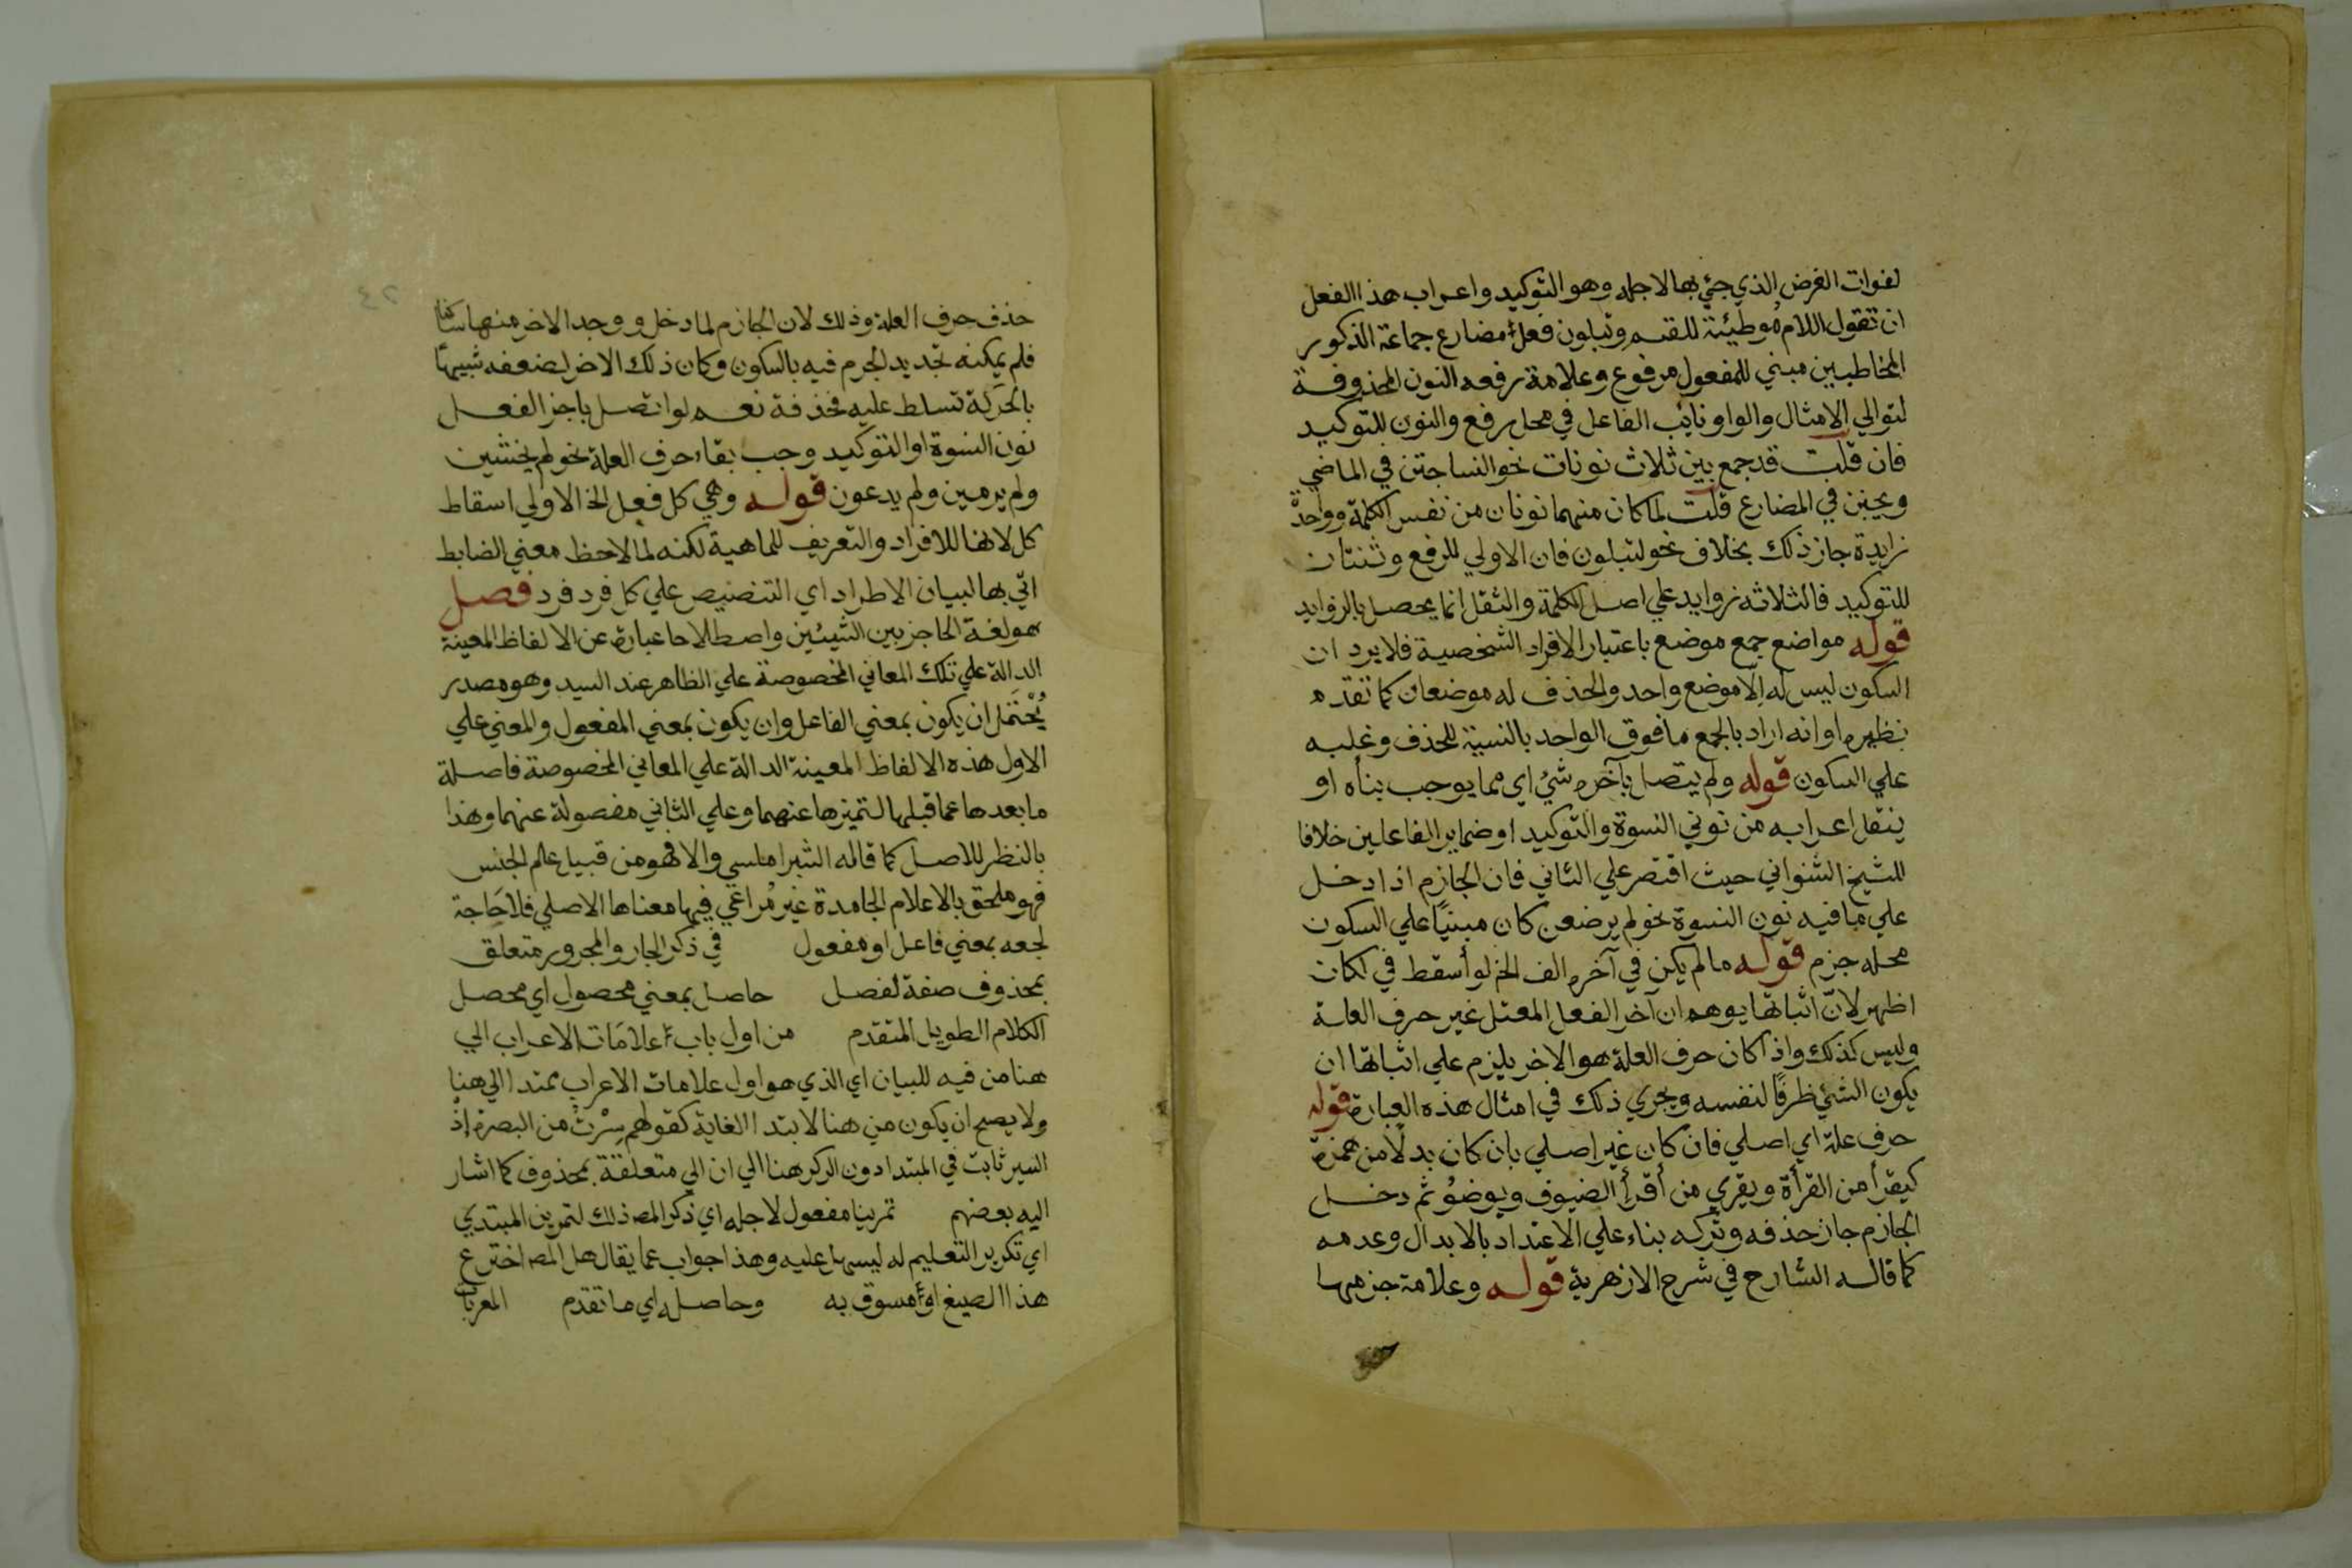 لفوات الغرض الذي جئي بها لاجله وهو التوكيد واعراب هذا الفعل
ان تقول اللام موطئة للقسم وتبلون فعل مضارع جماعة الذكور
المخاطبين مبني للمفعول مرفوع وعلامة رفعه النون المحذوفة
لتوالي الامثال والواو نائب الفاعل في محل رفع والنون للتوكيد
فان قلت قد جمع بين ثلاث نونات نحو النسا جنن في الماضي
ويجنن في المضارع قلت لما كان منهما نونان من نفس الكلمة وواحدة
زايدة جاز ذلك بخلاف نحو لتبلون فان الاولي للرفع وثنتان
للتوكيد فالثلاثه زوايد علي اصل الكلمة والثقل انما يحصل بالزوايد
قوله مواضع جمع موضع باعتبار الافراد الشخصية فلا يرد ان
السكون ليس له الا موضع واحد والحذف له موضعان كما تقدم
نظيره او انه اراد بالجمع ما فوق الواحد بالنسبة للحذف وغلبه
علي السكون قوله ولم يتصل بآخره شئ اي مما يوجب بناه او
ينقل اعرابه من نوني النسوة والتوكيد او ضماير الفاعلين خلافا
للشيخ الشنواني حيث اقتصر علي الثاني فان الجازم اذا دخل
علي ما فيه نون النسوة نحو لم يرضعن كان مبنيا علي السكون
محله جزم قوله ما لم يكن في آخره الف الخ لو أسقط في لكان
اظهر لانّ اثباتها يوهم ان آخر الفعل المعتل غير حرف العلة
وليس كذلك واذا كان حرف العلة هو الاخر يلزم علي اثباتها ان
يكون الشئ ظرفًا لنفسه ويجري ذلك في امثال هذه العبارة قوله
حرف علة اي اصلي فان كان غير اصلي بان كان بدلًا من همزة
كيقرأ من القرأة ويقري من أقرأ الضيوف ويوضؤ ثم دخل
الجازم جاز حذفه وتركه بناء علي الاعتداد بالابدال وعدمه
كما قاله الشارح في شرح الازهرية قوله وعلامة جزمها
حذف حرف العلة وذلك لان الجازم لما دخل ووجد الاخر منها ساكنا
فلم يمكنه تجديد الجزم فيه بالسكون وكان ذلك الاخر لضعفه شبيهًا
بالحركة تسلط عليه فحذفة نعم لو اتصل باجز الفعل
نون النسوة او التوكيد وجب بقاء حرف العلة نحو لم يخشين
ولم يرمين ولم يدعون قوله وهي كل فعل الخ الاولي اسقاط
كل لانها للافراد والتعريف للماهية لكنه لما لاحظ معني الضابط
اتي بها لبيان الاطراد اي التنصيص علي كل فرد فرد فصل
هو لغة الحاجز بين الشيئين واصطلاحا عبارة عن الالفاظ المعينة
الدالة علي تلك المعاني المخصوصة علي الظاهر عند السيد وهو مصدر
يُحْتَمَل ان يكون بمعني الفاعل وان يكون بمعني المفعول والمعني علي
الاول هذه الالفاظ المعينة الدالة علي المعاني المخصوصة فاصلة
ما بعدها عما قبلها لتميزها عنهما وعلي الثاني مفصولة عنهما وهذا
بالنظر للاصل كما قاله الشبراملسي والا فهو من قبيل علم الجنس
فهو ملحق بالاعلام الجامدة غير مُراعي فيها معناها الاصلي فلا حَاجة
لجعه بمعني فاعل او مفعول في ذكر الجار والمجرور متعلق
بمحذوف صفة لفصل حاصل بمعني محصول اي محصل
الكلام الطويل المتقدم من اول باب علامَات الاعراب الي
هنا من فيه للبيان اي الذي هو اول علامات الاعراب ممتدا الي هنا
ولا يصح ان يكون من هنا لابتدا الغاية كقولهم سِرْتُ من البصرة إذْ
السير ثابت في المبتدا دون الركر هنا الي ان الي متعلقة بمحذوف كما اشار
اليه بعضهم تمرينا مفعول لاجله اي ذكر المص ذلك لتمرين المبتدي
اي تكرير التعليم له ليسهل عليه وهذا جواب عما يقال هل المص اخترع
هذا الصيغ او مسوق به وحاصله اي ما تقدم المعربات